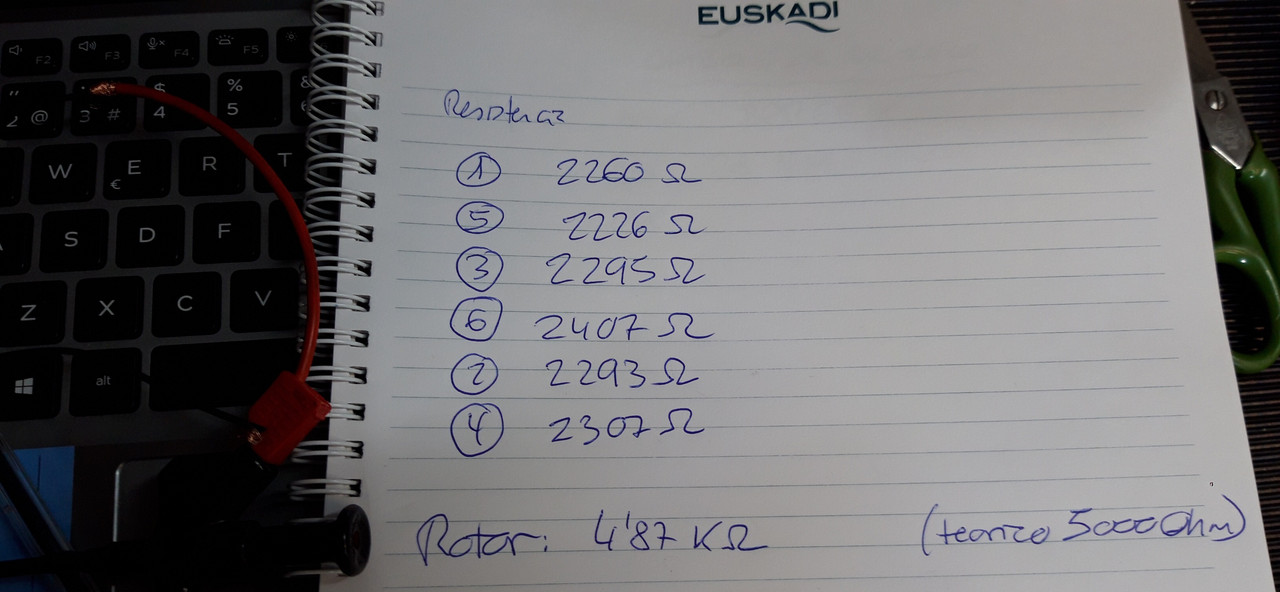 EUSKADI
① 2260 Ω
⑤ 2226 Ω
③ 2295 Ω
⑥ 2407 Ω
② 2293 Ω
④ 2307 Ω
Rotor: 4'87 KΩ (teorico 5000 Ohm)
F2 F3 F4 F5
" $ % &
2 @ 3 # 4 5 6
W E R T
€
S D F
Z X C V
alt